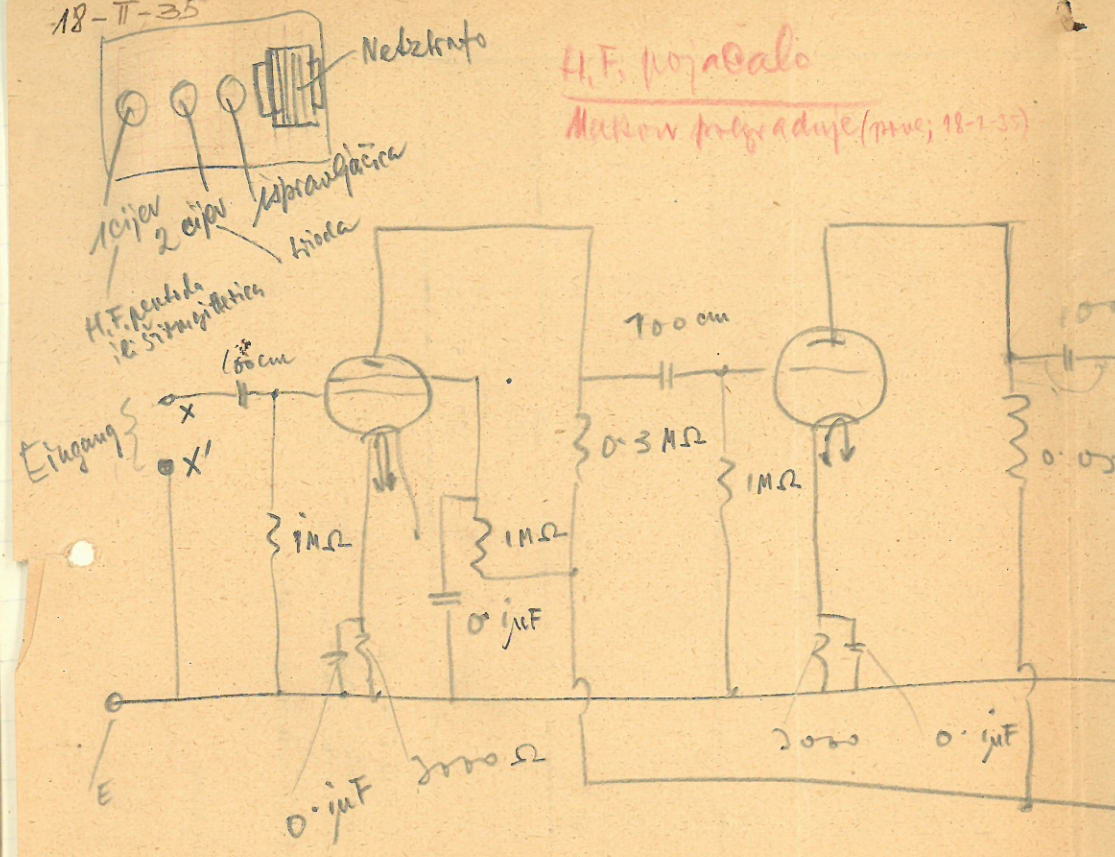 18-II-35
Netztrafo
H.F. pojačalo
(prve; 18-1-35)
1 cijev
2 cijev
ispravljačica
trioda
H.F. pentoda
ili
100 cm
100 cm
Eingang
X
X'
0.3 MΩ
1MΩ
1MΩ
1MΩ
0.1μF
E
0.1μF
3000 Ω
3000
0.1μF